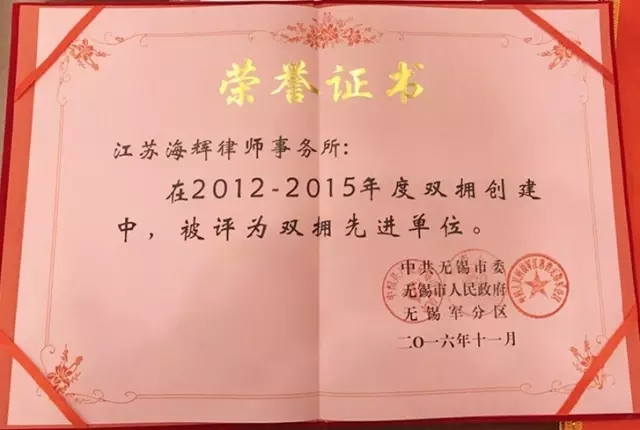 荣誉证书
江苏海辉律师事务所:
在2012-2015年度双拥创建
中，被评为双拥先进单位。
中共无锡市委
无锡市人民政府
无锡军分区
二〇一六年十一月